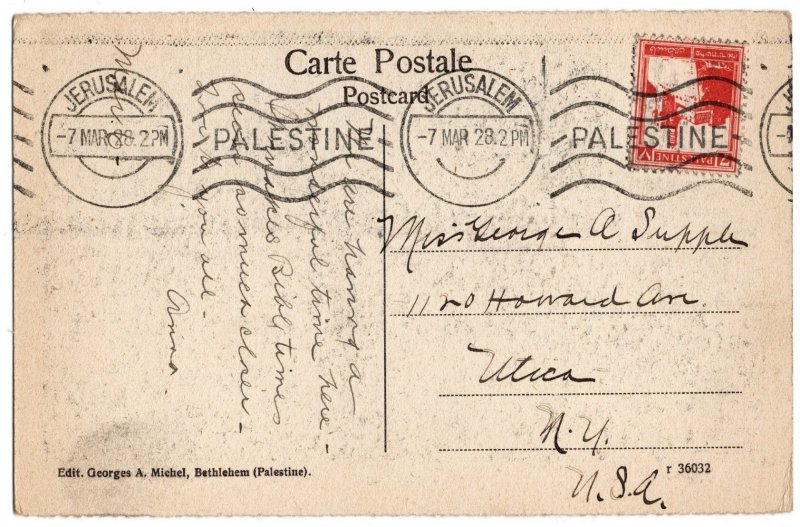 Carte Postale
Postcard
JERUSALEM
-7 MAR 28.2 PM
PALESTINE
JERUSALEM
-7 MAR 28.2 PM
PALESTINE
PALESTINE
7
having a
wonderful time here -
makes Bible times
seem so much closer -
wish you all -
Anna.
Miss George A Supple
1120 Howard Ave.
Utica
N.Y.
U.S.A.
Edit. Georges A. Michel, Bethlehem (Palestine).
r 36032